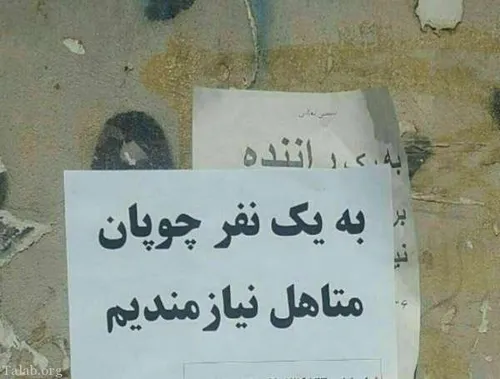 به یک راننده
به یک نفر چوپان
متاهل نیازمندیم
Talab.org